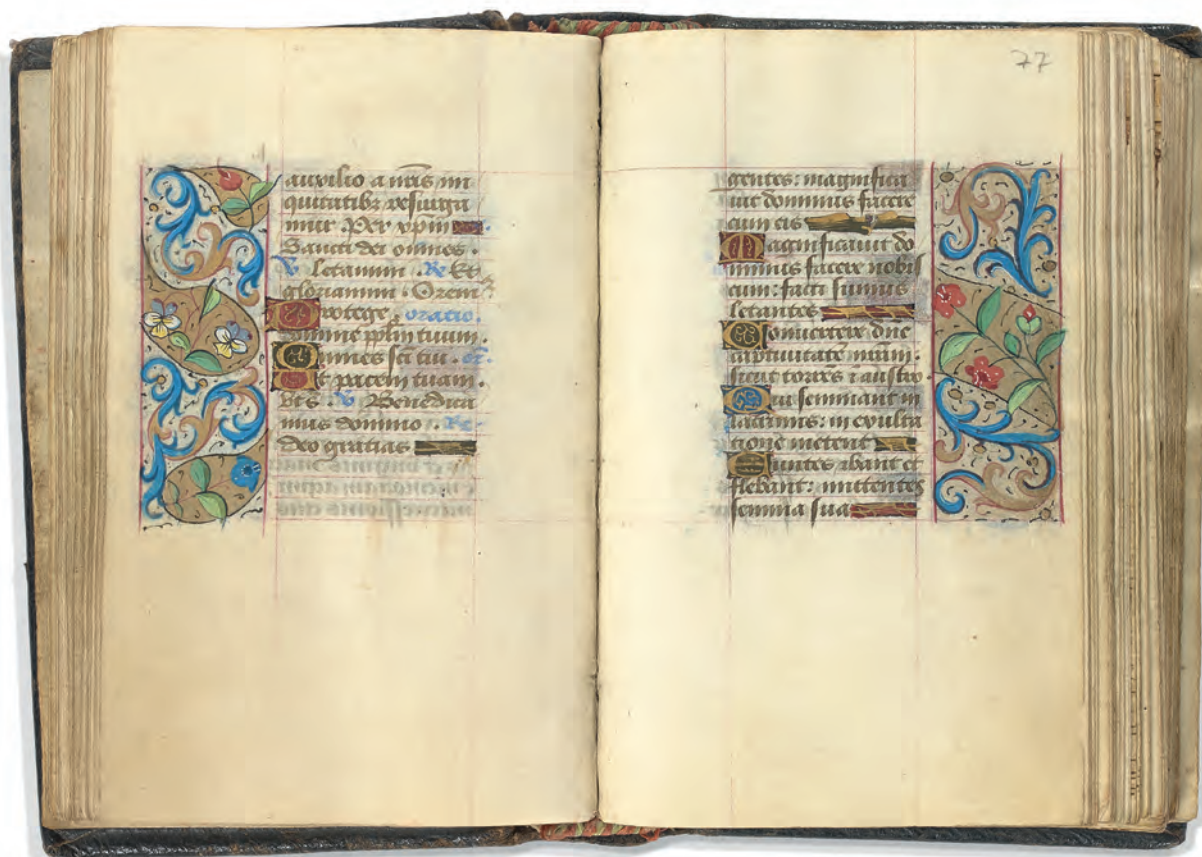 auxilio a nr̄is ini
quitatibꝫ resurga
mus. Per xp̄m
Sancti dei omnes.
℣ Letamini. ℟ Et
gloriamini. Orem⁹
Protege oratio.
domine pplm̄ tuum.
Omnes sc̄i tui. or̄.
Et pacem tuam.
℣ Benedica
mus domino. ℟
Deo gratias
77
gentes: magnifica
uit dominus facere
cum eis
Magnificauit do
minus facere nobis
cum: facti sumus
letantes
Conuertere dn̄e
captiuitatē nr̄am.
sicut torrēs ī austro.
Qui seminant in
lacrimis: in exulta
tione metent
Euntes ibant et
flebant: mittentes
semina sua